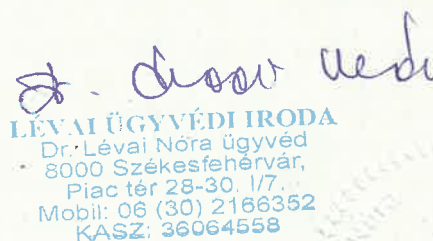 LÉVAI ÜGYVÉDI IRODA
Dr. Lévai Nóra ügyvéd
8000 Székesfehérvár,
Piac tér 28-30. I/7.
Mobil: 06 (30) 2166352
KASZ: 36064558